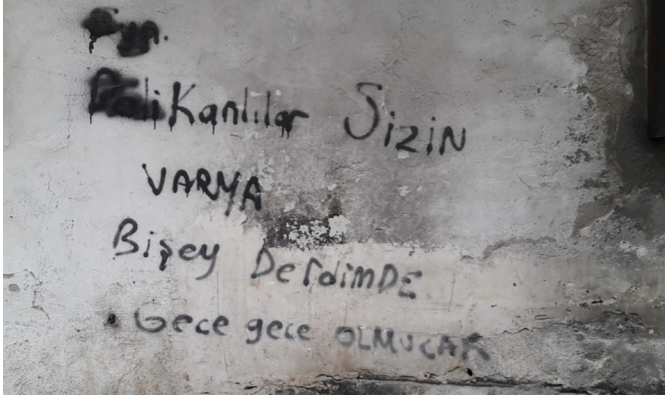 DeliKanlılar Sizin
VARYA
Bişey DerdimDE
Gece gece OLMUCAK